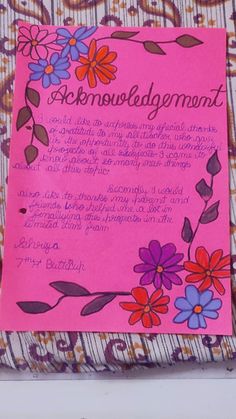 Acknowledgement
I would like to express my special thanks
of gratitude to my all teacher who gave
us the opportunity to do this wonderful
projects of all subjects I came to
know about so many new things
about all this topic.
Secondly I would
also like to thanks my parent and
friends who helped me a lot in
finalizying this projects in the
limited time frame
7th